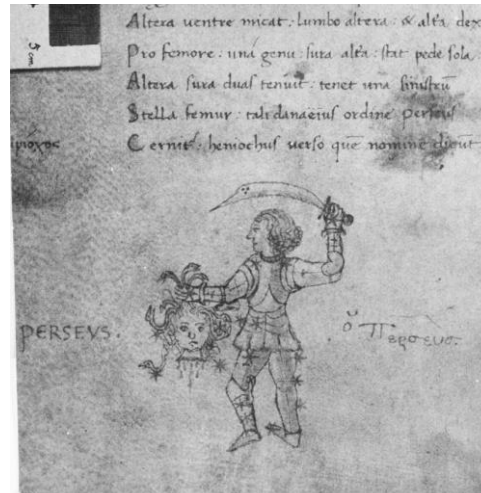 Altera uentre micat: lumbo altera: & alťa dex
Pro femore: unā genu: sura alťa: stat pede sola.
Altera sura duas tenuit: tenet una sinistrū
Stella femur: tali danaeius ordine perseus
ηνίοχος Cernit: heniochus uerso quē nomine dicunt
PERSEVS.
ὁ Περσευς.
5 cm